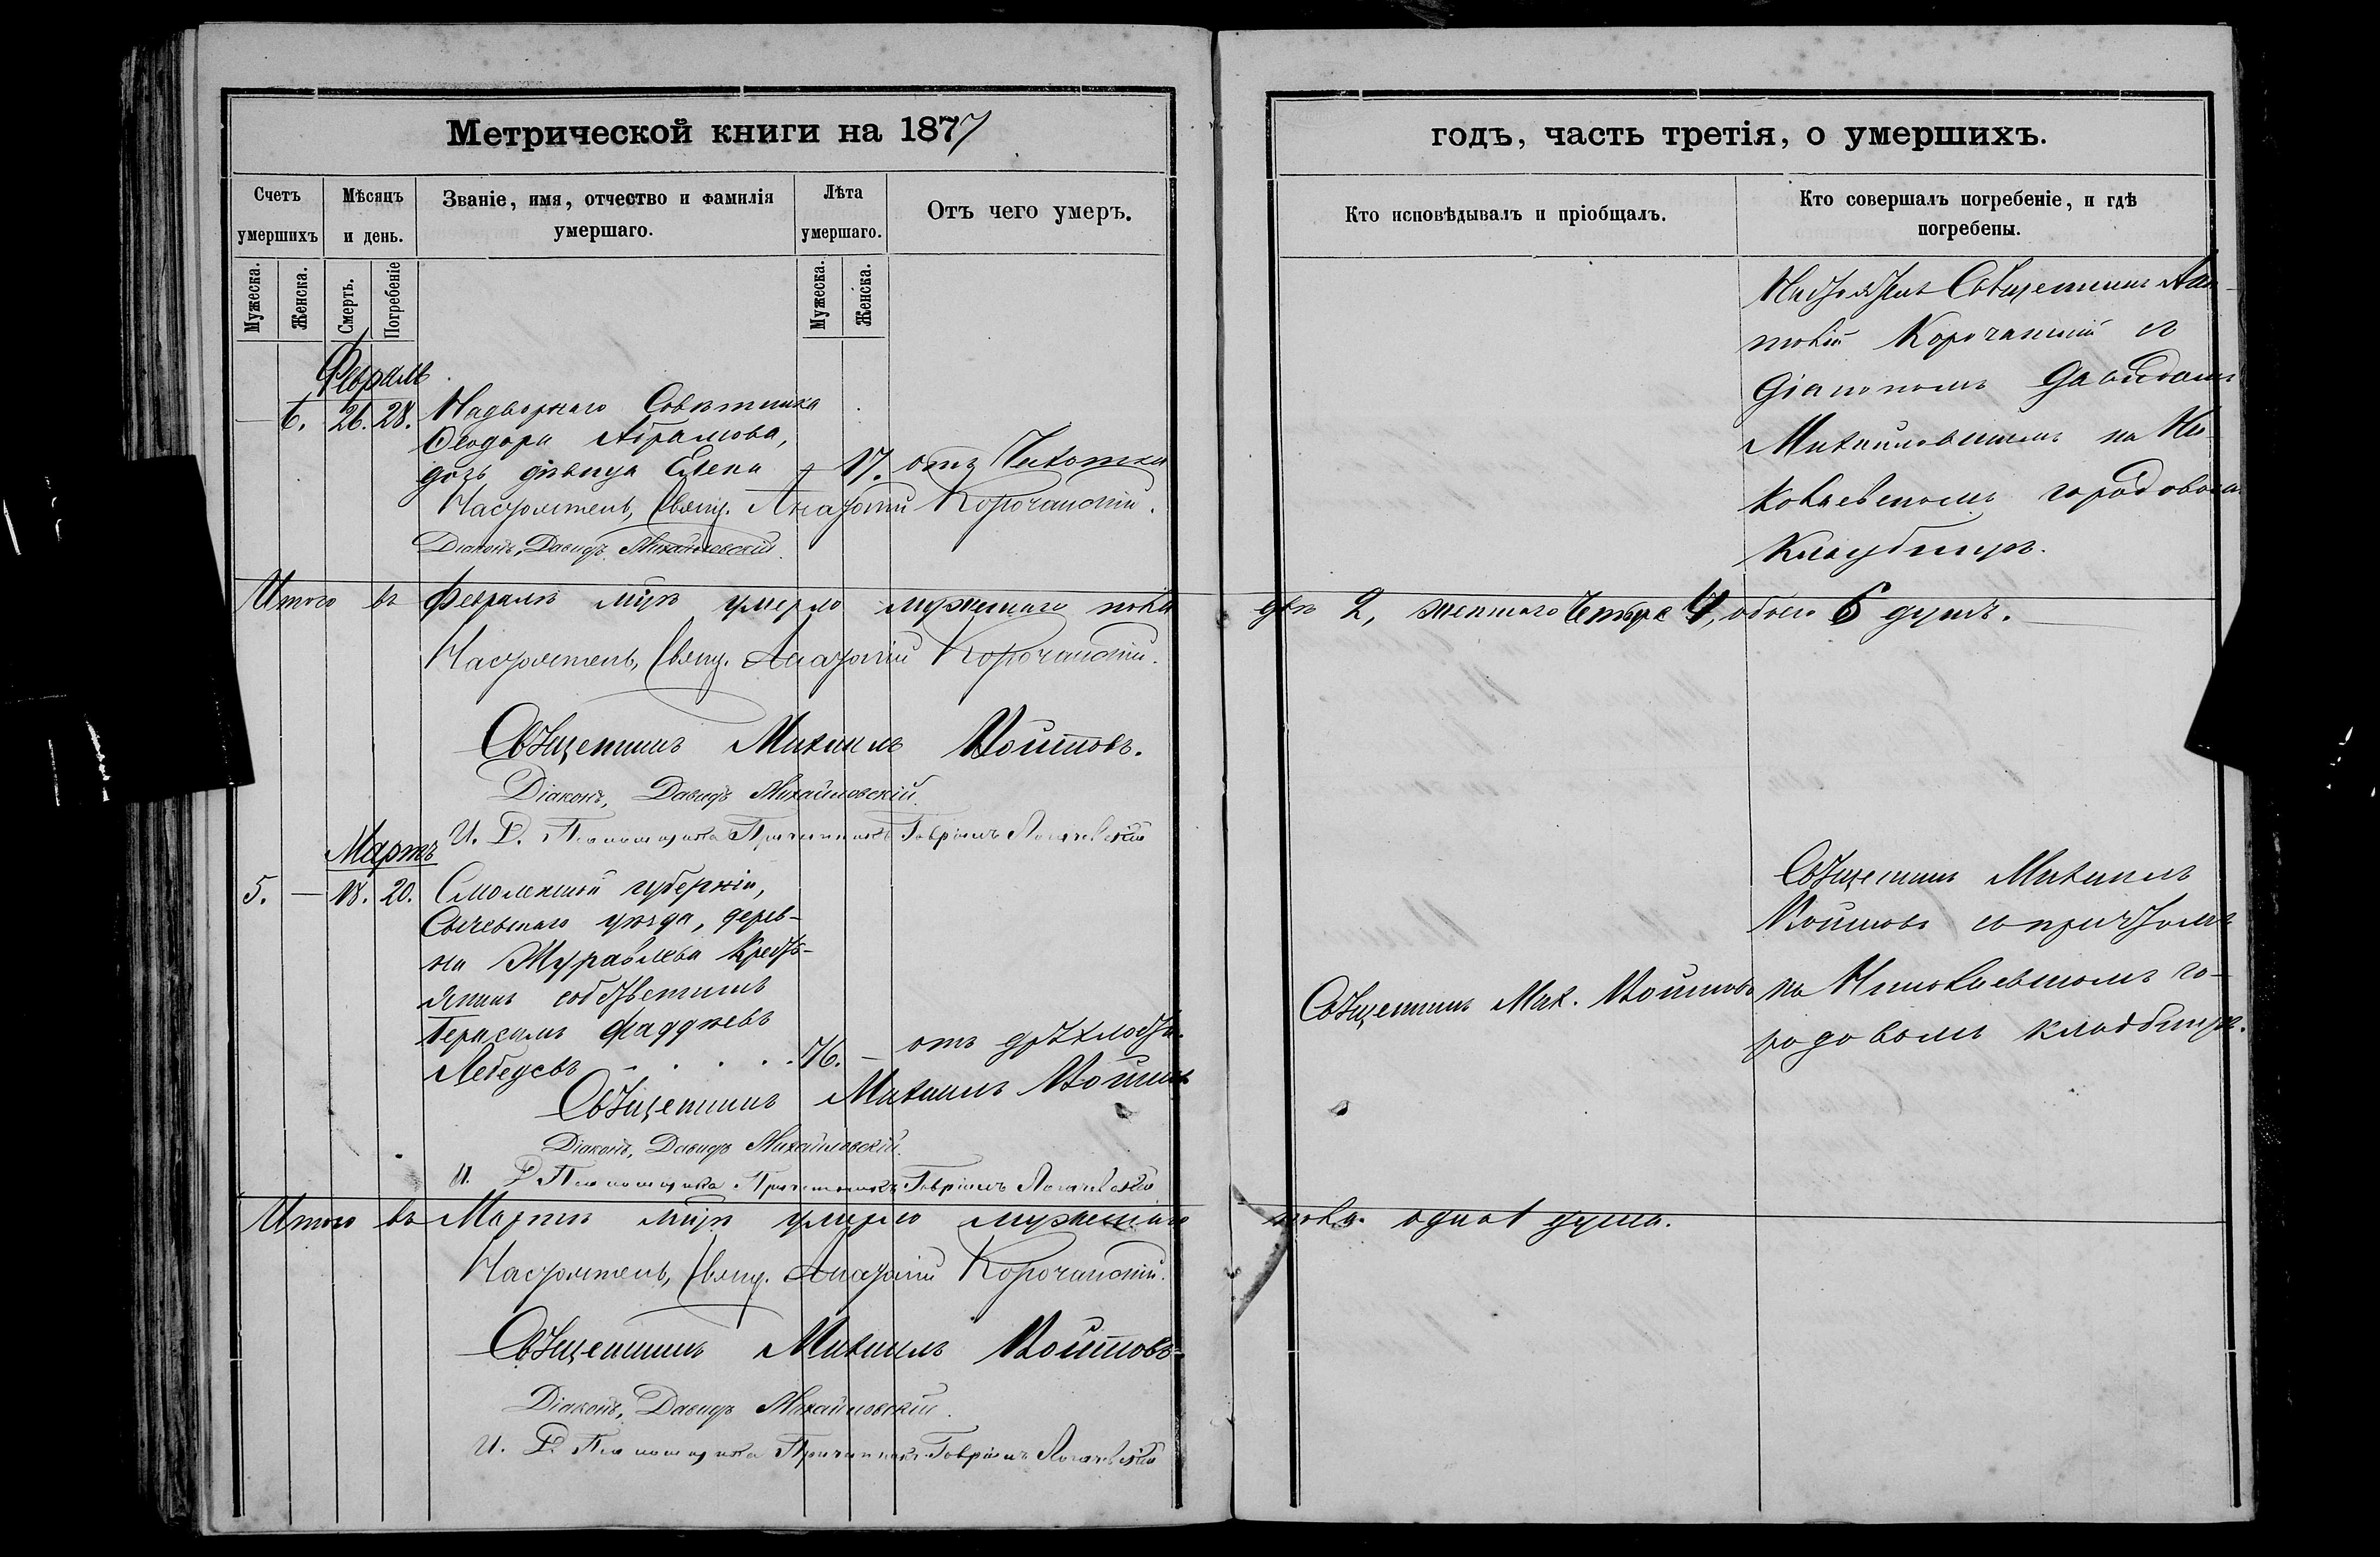 Метрической книги на 1877
Счетъ умершихъ
Мѣсяцъ и день.
Званіе, имя, отчество и фамилія умершаго.
Лѣта умершаго.
Отъ чего умеръ.
Мужеска.
Женска.
Смерть.
Погребеніе
Мужеска.
Женска.
Февраль
— 6. 26. 28. Надворнаго Совѣтника
Ѳеодора Абрамова,
дочь дѣвица Елена 17. отъ Чахотки
Настоятель, Свящ. Анатолій Корочанскій.
Діаконъ, Давидъ Михайловскій.
Итого въ Февралѣ м-цѣ умерло мужескаго пола
Настоятель, Свящ. Анатолій Корочанскій.
Священникъ Михаилъ Войтовъ.
Діаконъ, Давидъ Михайловскій.
И. Д. Псаломщика Причетникъ Гавріилъ
Мартъ
5. — 18. 20. Смоленской губерніи,
Сычевскаго уѣзда, дерев-
ни Журавлева Кресть-
янинъ собственникъ
Герасимъ Фаддѣевъ
Лебедевъ . . . . . 76. — отъ дряхлости.
Священникъ Михаилъ Войтовъ
Діаконъ, Давидъ Михайловскій.
И. Д. Псаломщика Причетникъ Гавріилъ
Итого въ Мартѣ м-цѣ умерло мужескаго
Настоятель, Свящ. Анатолій Корочанскій.
Священникъ Михаилъ Войтовъ.
Діаконъ, Давидъ Михайловскій.
И. Д. Псаломщика Причетникъ Гавріилъ
годъ, часть третія, о умершихъ.
Кто исповѣдывалъ и пріобщалъ.
Кто совершалъ погребеніе, и гдѣ погребены.
Настоятель Священникъ Ана-
толій Корочанскій съ
Діакономъ Давидомъ
Михайловскимъ на Ни-
колаевскомъ городовомъ
Кладбищѣ.
два 2, женскаго Четыре 4, обоего 6 душъ.
Священникъ Михаилъ
Войтовъ съ причтомъ
Священникъ Мих. Войтовъ
на Николаевскомъ го-
родовомъ кладбищѣ.
пола одна 1 душа.